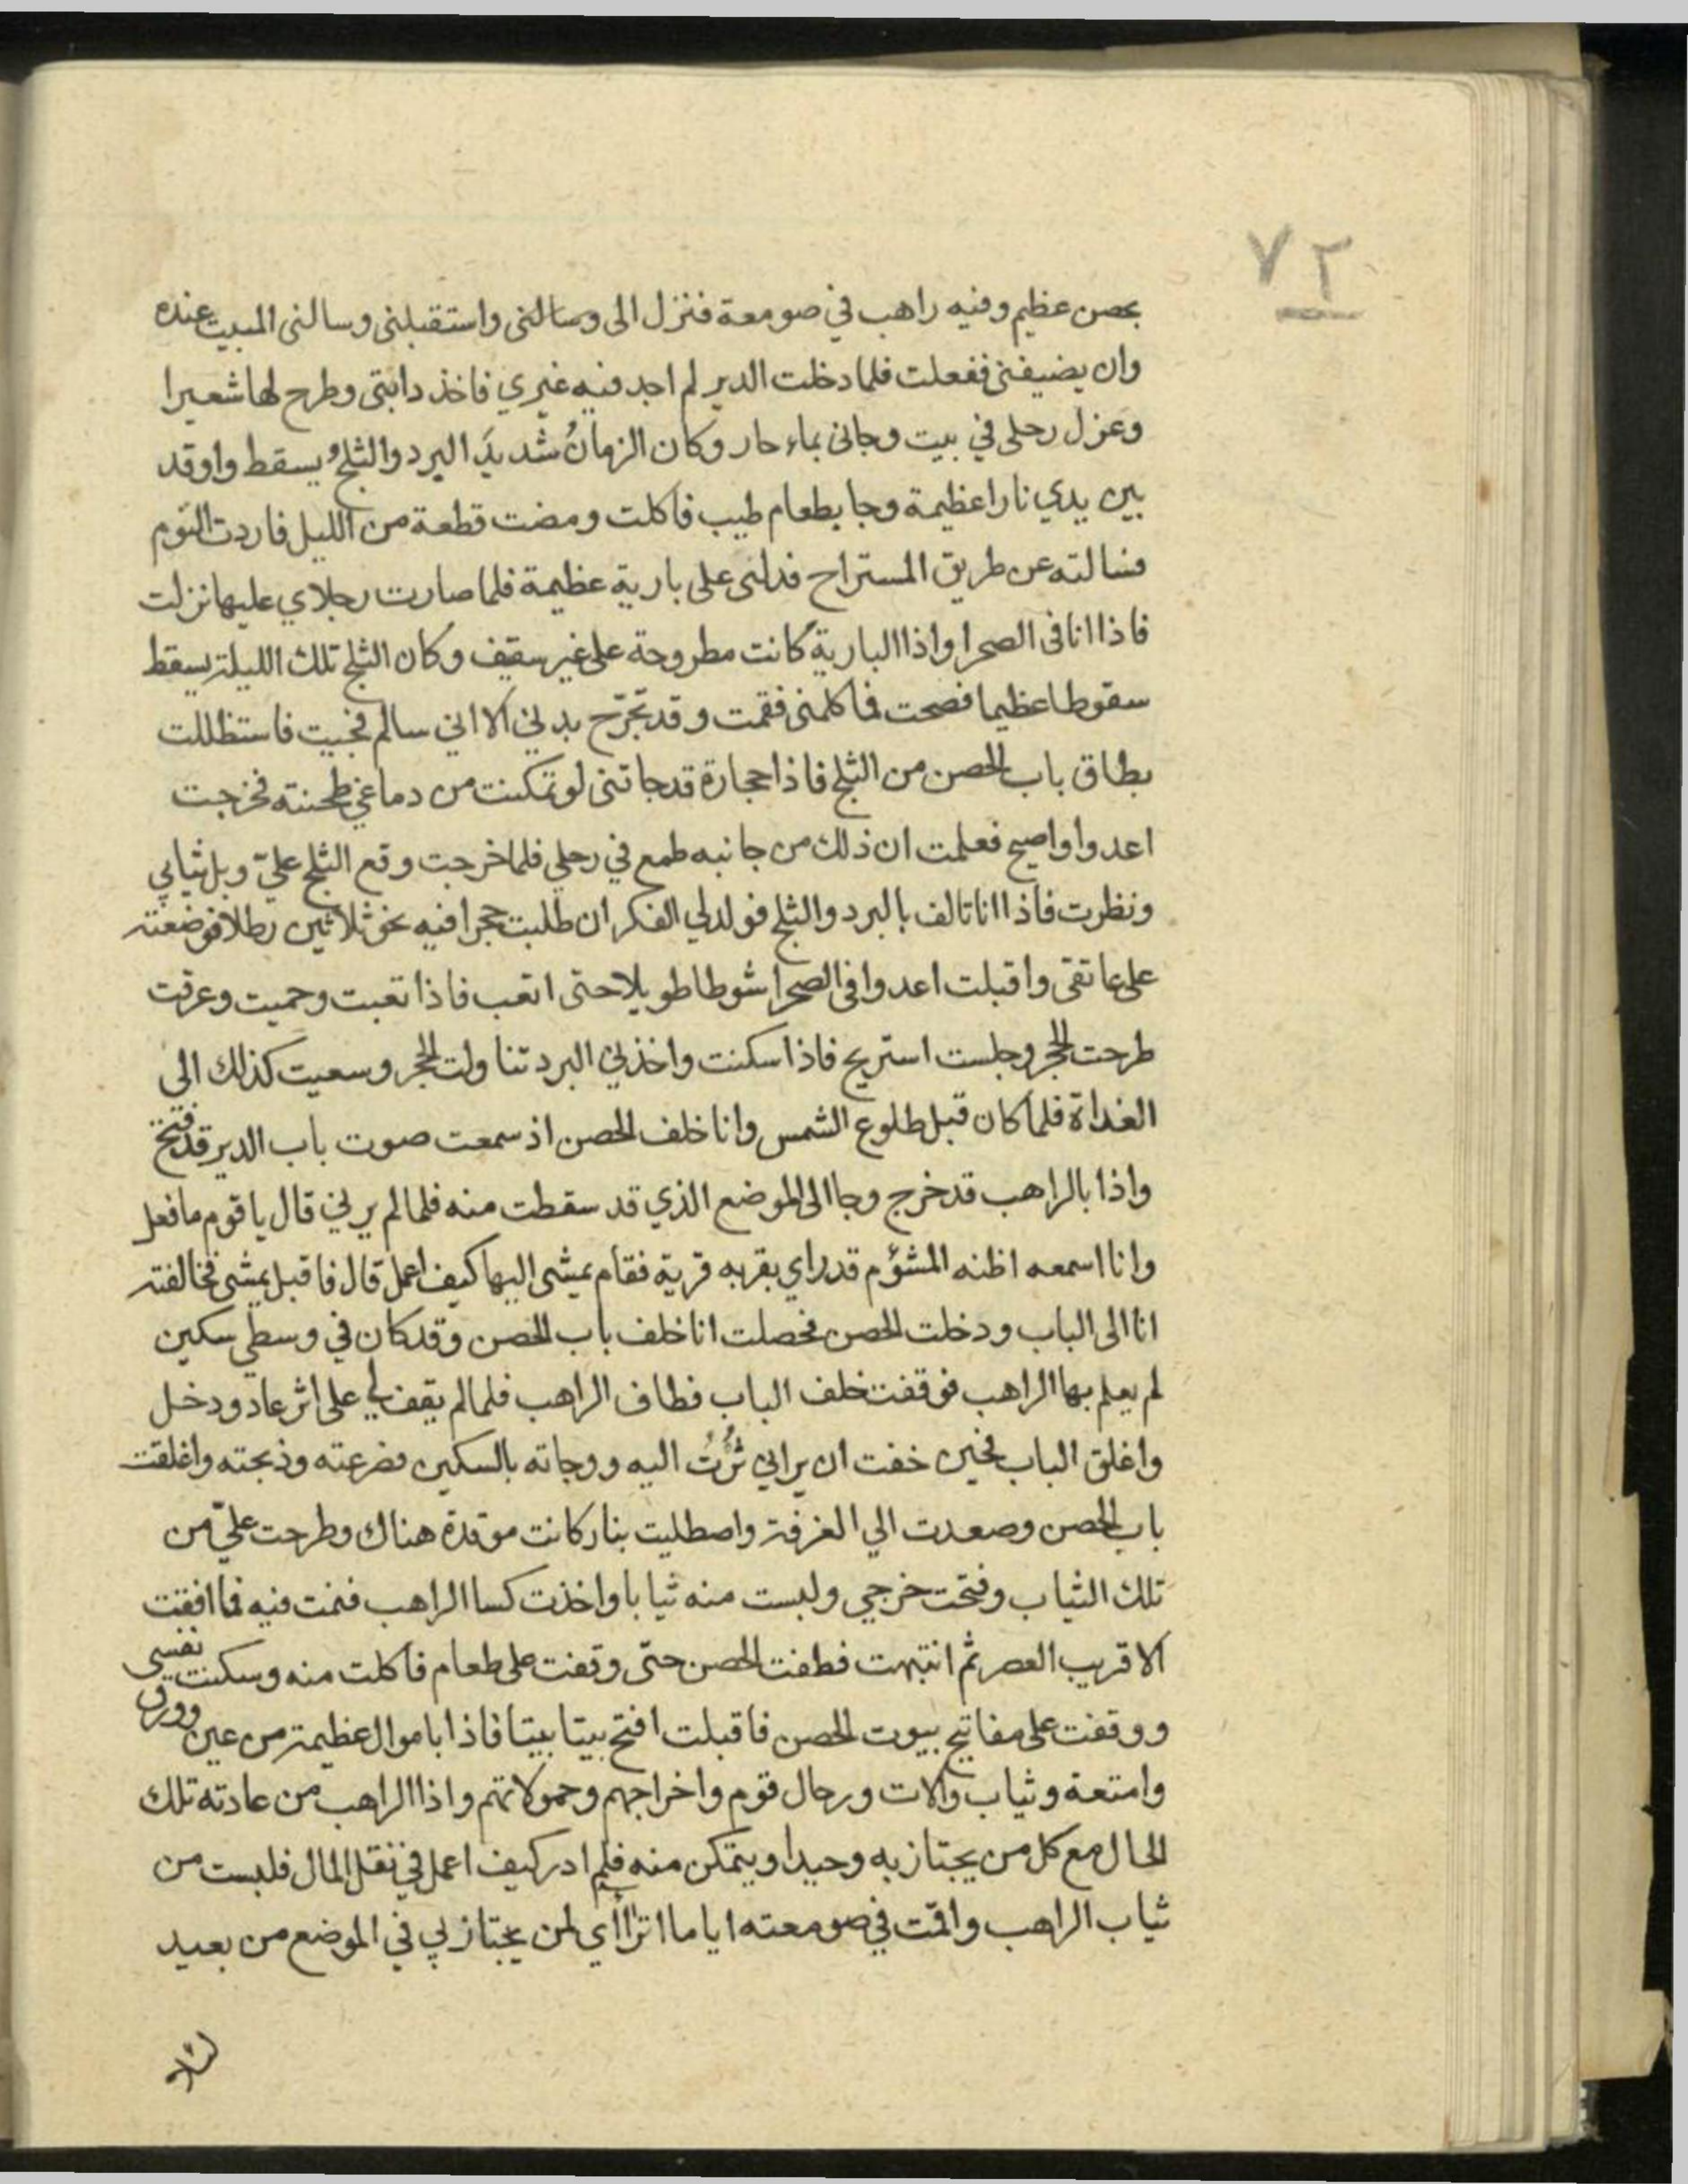 ٧٢
بحصن عظيم وفيه راهب في صومعة فنزل الى وسالنى واستقبلنى وسالنى المبيت عنده
وان يضيفنى ففعلت فلما دخلت الدير لم اجد فيه غيري فاخذ دابتى وطرح لها شعيرا
وعزل رحلى في بيت وجانى بماء حار وكان الزمانُ شديدَ البرد والثلجُ يسقط واوقد
بين يدي نارا عظيمة وجا بطعام طيب فاكلت ومضت قطعة من الليل فاردت النوم
فسالته عن طريق المستراح فدلنى على بارية عظيمة فلما صارت رجلاي عليها نزلت
فاذا انا فى الصحرا واذا البارية كانت مطروحة على غير سقيف وكان الثلج تلك الليلة يسقط
سقوطا عظيما فصحت فما كلمنى فقمت وقد تجرّح بدني الا اني سالم فجيت فاستظللت
بطاق باب الحصن من الثلج فاذا حجارة قد جاتنى لو تمكنت من دماغي طحنته فخرجت
اعدوا واصيح فعلمت ان ذلك من جانبه طمع في رحلي فلما خرجت وقع الثلج عليّ وبل ثيابي
ونظرت فاذا انا تالف بالبرد والثلج فولد لي الفكر ان طلبت حجرا فيه نحو ثلاثين رطلا فوضعته
على عاتقى واقبلت اعدوا فى الصحرا شوطا طويلا حتى اتعب فاذا تعبت وحميت وعرقت
طرحت الحجر وجلست استريح فاذا سكنت واخذني البرد تناولت الحجر وسعيت كذلك الى
الغداة فلما كان قبل طلوع الشمس وانا خلف الحصن اذ سمعت صوت باب الدير قد فتح
واذا بالراهب قد خرج وجا الى الموضع الذي قد سقطت منه فلما لم يرني قال يا قوم ما فعل
وانا اسمعه اظنه المشؤم قد راي بقربه قرية فقام يمشى اليها كيف اعمل قال فاقبل يمشى فخالفته
انا الى الباب ودخلت الحصن فحصلت انا خلف باب الحصن وقد كان في وسطي سكين
لم يعلم بها الراهب فوقفت خلف الباب فطاف الراهب فلما لم يقف لي على اثر عاد ودخل
واغلق الباب فحين خفت ان يراني ثُرْتُ اليه ووجاته بالسكين فصرعته وذبحته واغلقت
باب الحصن وصعدت الي الغرفة واصطليت بنار كانت موقدة هناك وطرحت عليّ من
تلك الثياب وفتحت خرجي ولبست منه ثيابا واخذت كسا الراهب فنمت فيه فما افقت
الا قريب العصر ثم انتبهت فطفت الحصن حتى وقفت على طعام فاكلت منه وسكنت نفسي
ووقفت على مفاتيح بيوت الحصن فاقبلت افتح بيتا بيتا فاذا باموال عظيمة من عين وورق
وامتعة وثياب والات ورحال قوم واخراجهم وحمولاتهم واذا الراهب من عادته تلك
الحال مع كل من يجتاز به وحيدا ويتمكن منه فلم ادر كيف اعمل في نقل المال فلبست من
ثياب الراهب واقمت في صومعته اياما اتراأي لمن يجتاز بي في الموضع من بعيد
لئلا